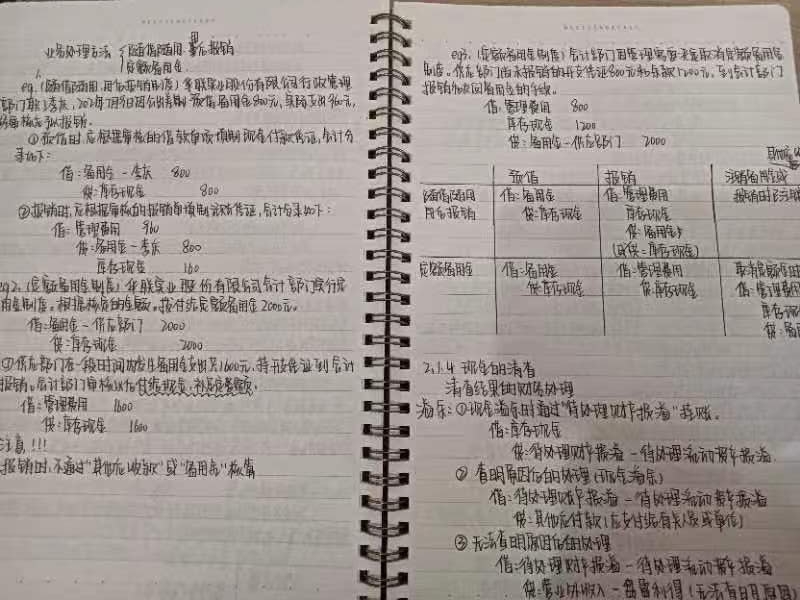 业务处理方法 随借随用 用后报销
定额备用金
eg1. (随借随用,用后报销制度) 华联实业股份有限公司行政管理
部门职工李庆,
预借备用金800元,实际支出960元,
经审核后予以报销。
①预借时,应根据审核的借款单填制现金付款凭证,会计分
录如下:
借:备用金-李庆 800
贷:库存现金 800
②报销时,应根据审核的报销单填制凭证,会计分录如下:
借:管理费用 960
贷:备用金-李庆 800
库存现金 160
eg2. (定额备用金制度) 华联实业股份有限公司会计部门实行定
用金制度。根据核定的金额,拨付给定额备用金2000元。
借:备用金-供应部门 2000
贷:库存现金 2000
①供应部门在一段时间内发生备用金支出共1600元,持开支凭证到会计
报销。会计部门审核以后付给现金,补足定额。
借:管理费用 1600
贷:库存现金 1600
注意!!!
报销时,不通过“其他应收款”或“备用金”核算
eg3. (定额备用金制度) 会计部门因管理需要决定取消定额备用金
制度。供应部门尚未报销的开支凭证800元和余款1200元,到会计部门
报销
备用金的手续。
借:管理费用 800
库存现金 1200
贷:备用金-供应部门 2000
预借 报销 注销备用金或
随借随用 借:备用金 借:管理费用 报销时已注销
用后报销 贷:库存现金 库存现金
贷:备用金
(或贷:库存现金)
定额备用金 借:备用金 借:管理费用 取消定额
贷:库存现金 贷:库存现金 借:管理费用
库存现金
贷:备
2.1.4 现金的清查
清查结果的财务处理
溢余:①现金溢余时通过“待处理财产损溢”挂账。
借:库存现金
贷:待处理财产损溢-待处理流动资产损溢
② 查明原因后的处理 (现金溢余)
借:待处理财产损溢-待处理流动资产损溢
贷:其他应付款(应支付给有关人员或单位)
③ 无法查明原因后的处理
借:待处理财产损溢-待处理流动资产损溢
贷:营业外收入-盘盈利得(无法查明原因)